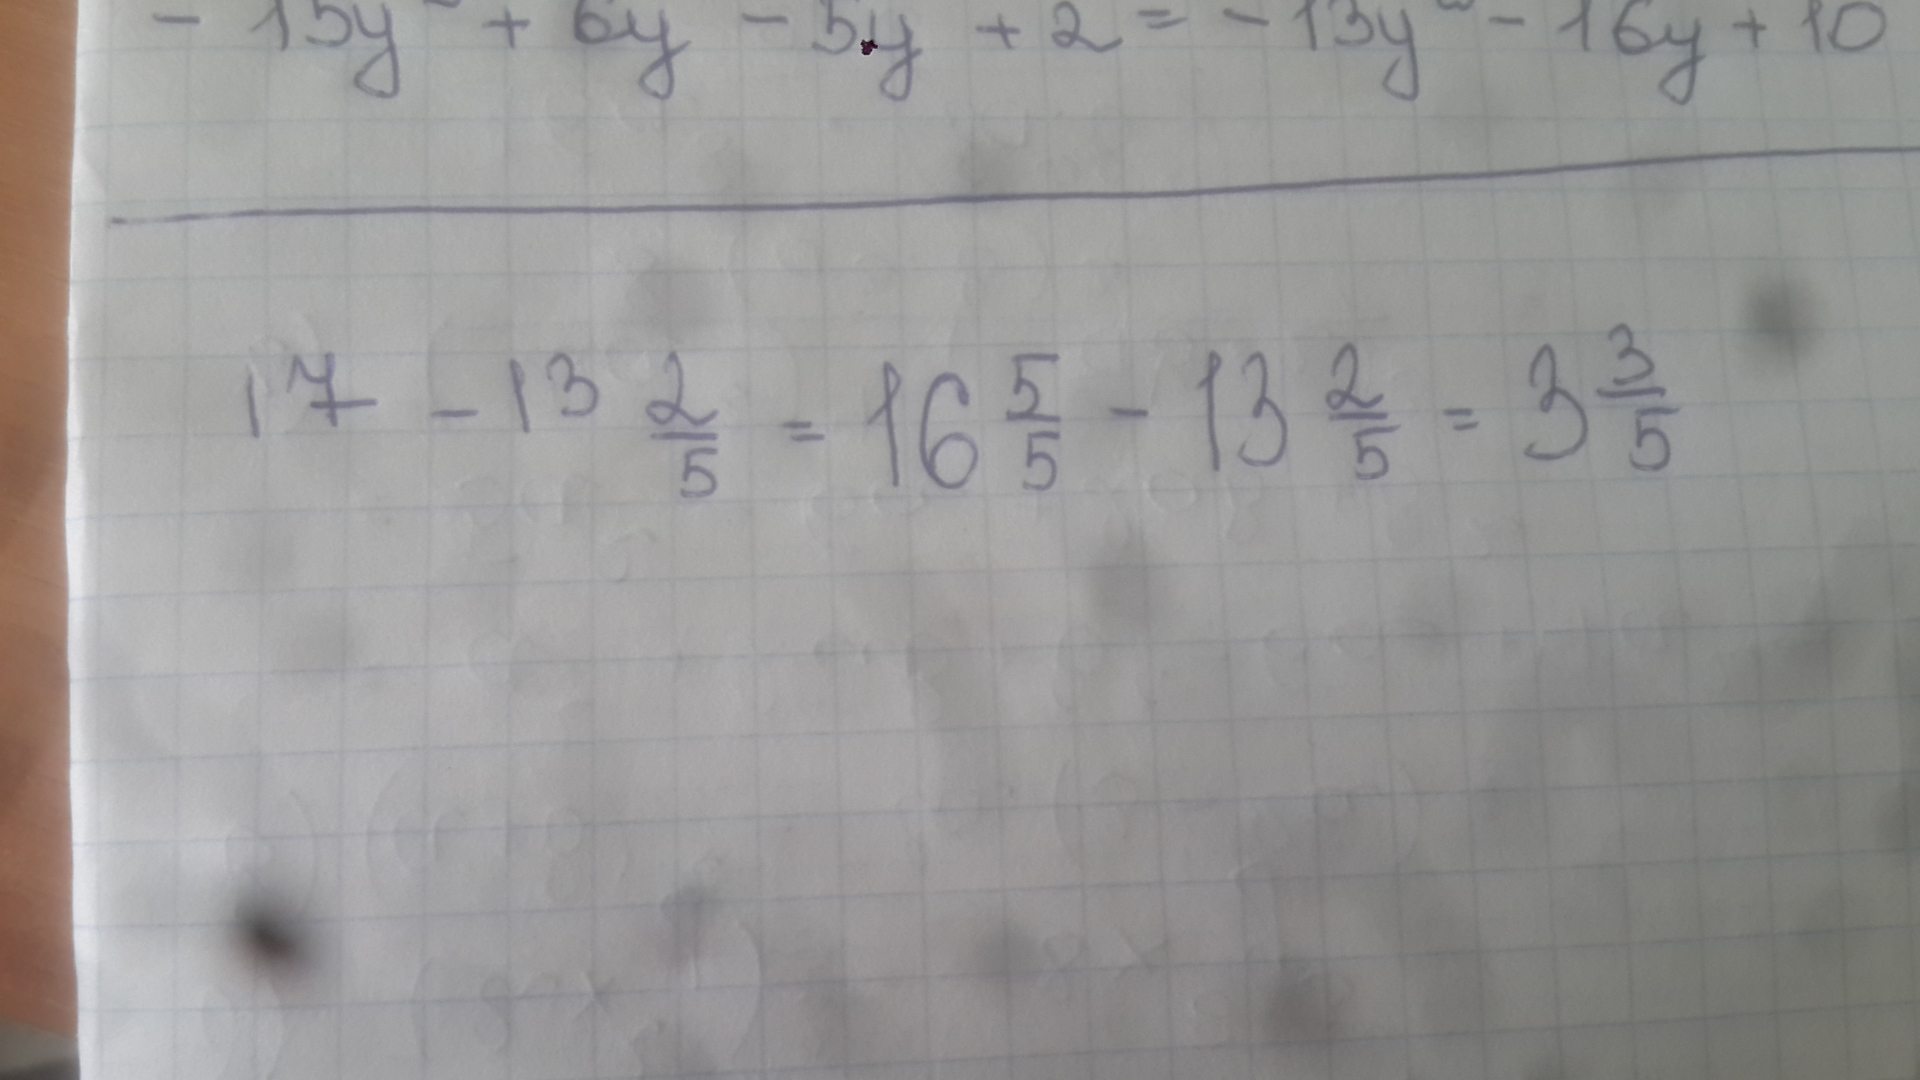 - 15y² + 6y - 5y + 2 = - 13y² - 16y + 10
17 - 13 2/5 = 16 5/5 - 13 2/5 = 3 3/5